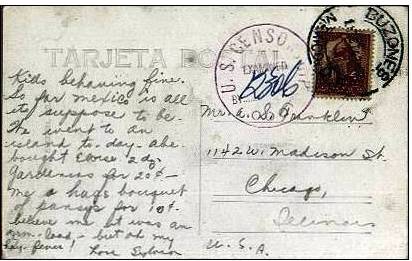 TARJETA POSTAL
U. S. CENSORSHIP
EXAMINED
BUZONES
Kids behaving fine.
So far mexico is all
its suppose to be.
We went to an
island to-day. abe
bought Elnse 2 dg.
Gardenias for 20¢-
me a huge bouquet
of pansys for 10¢.
believe me it was an
arm-load - but oh my
hay-fever! Love Sylvia
Mr. E. S. Franklin
1142 W. Madison St.
Chicago,
Illinois
U. S. A.